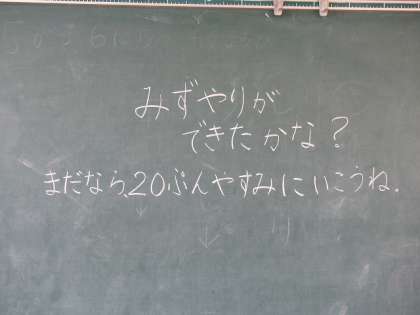 みずやりが
できたかな？
まだなら、20ぷんやすみにいこうね.